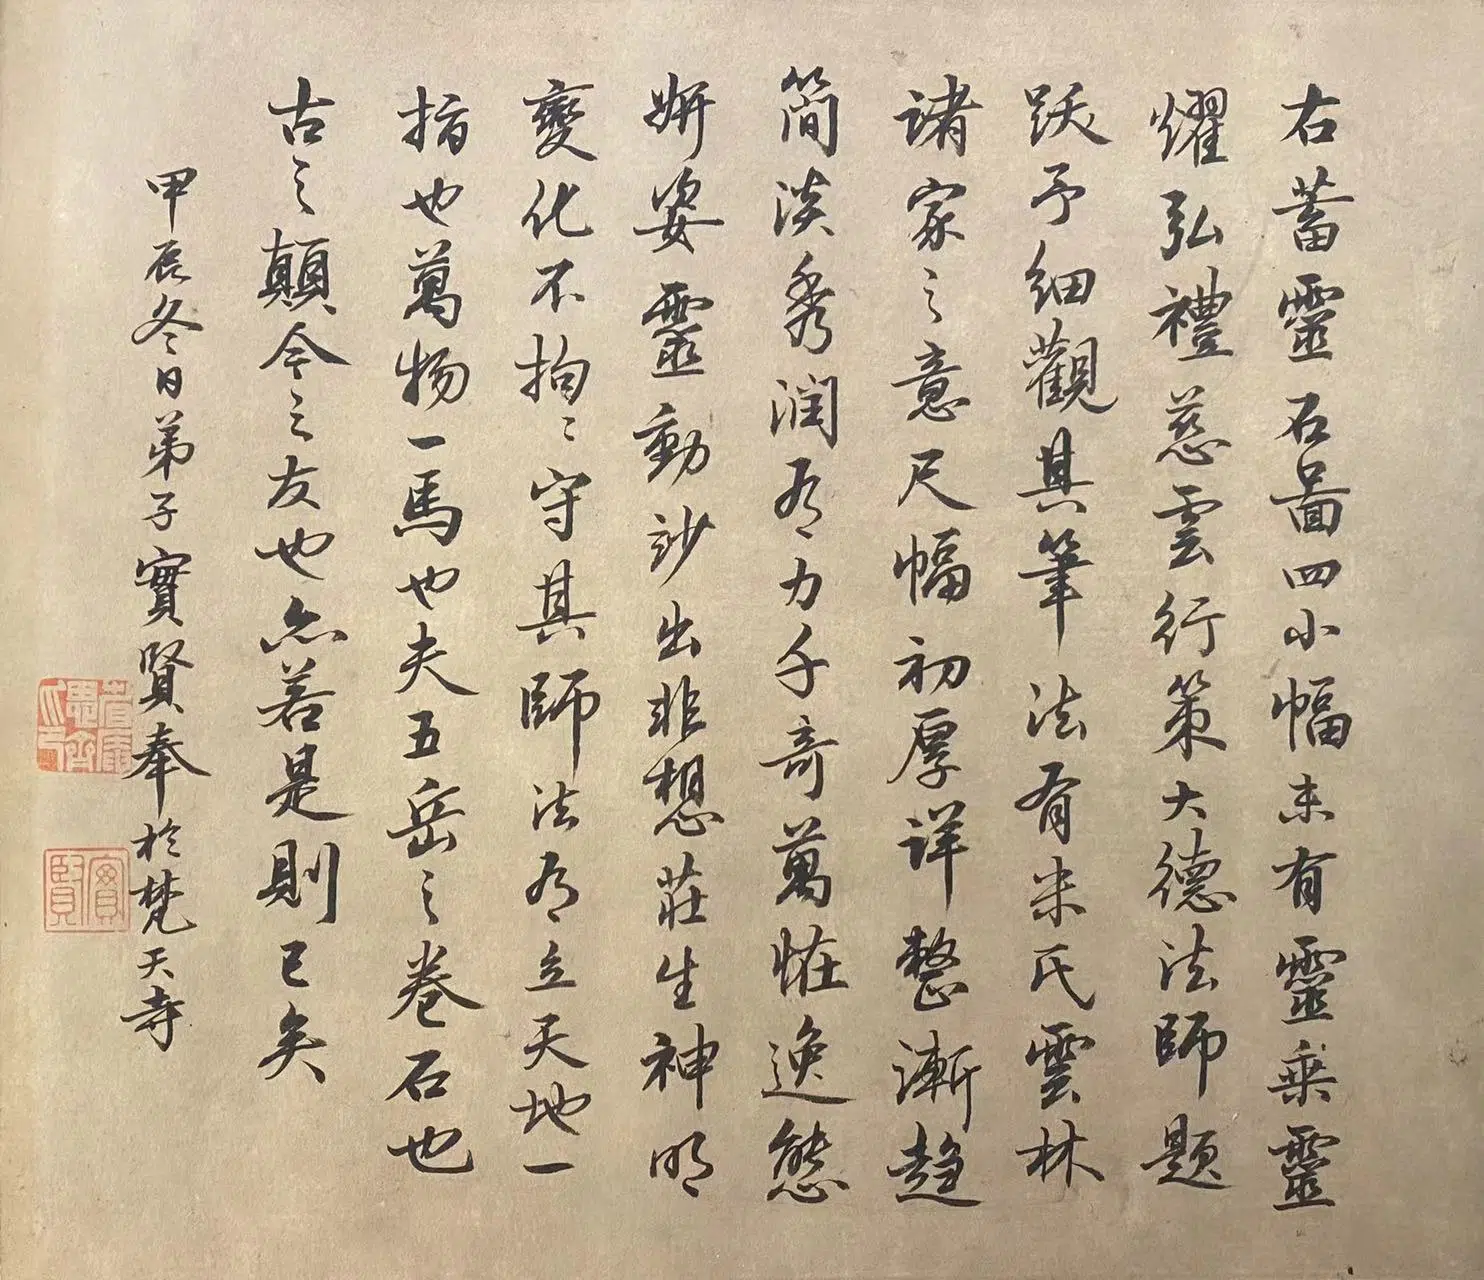 右蓄靈石圖四小幅末有靈乘靈
燿弘禮慈雲行策大德法師題
跋予細觀其筆法有米氏雲林
諸家之意尺幅初厚详整漸趋
簡淡秀润为力千奇萬怪逸態
妍姿靈動妙出非想莊生神明
變化不拘〻守其師法为立天地一
指也萬物一馬也夫五岳之卷石也
古之顛今之友也亦若是則已矣
甲辰冬日弟子實賢奉於梵天寺
實賢